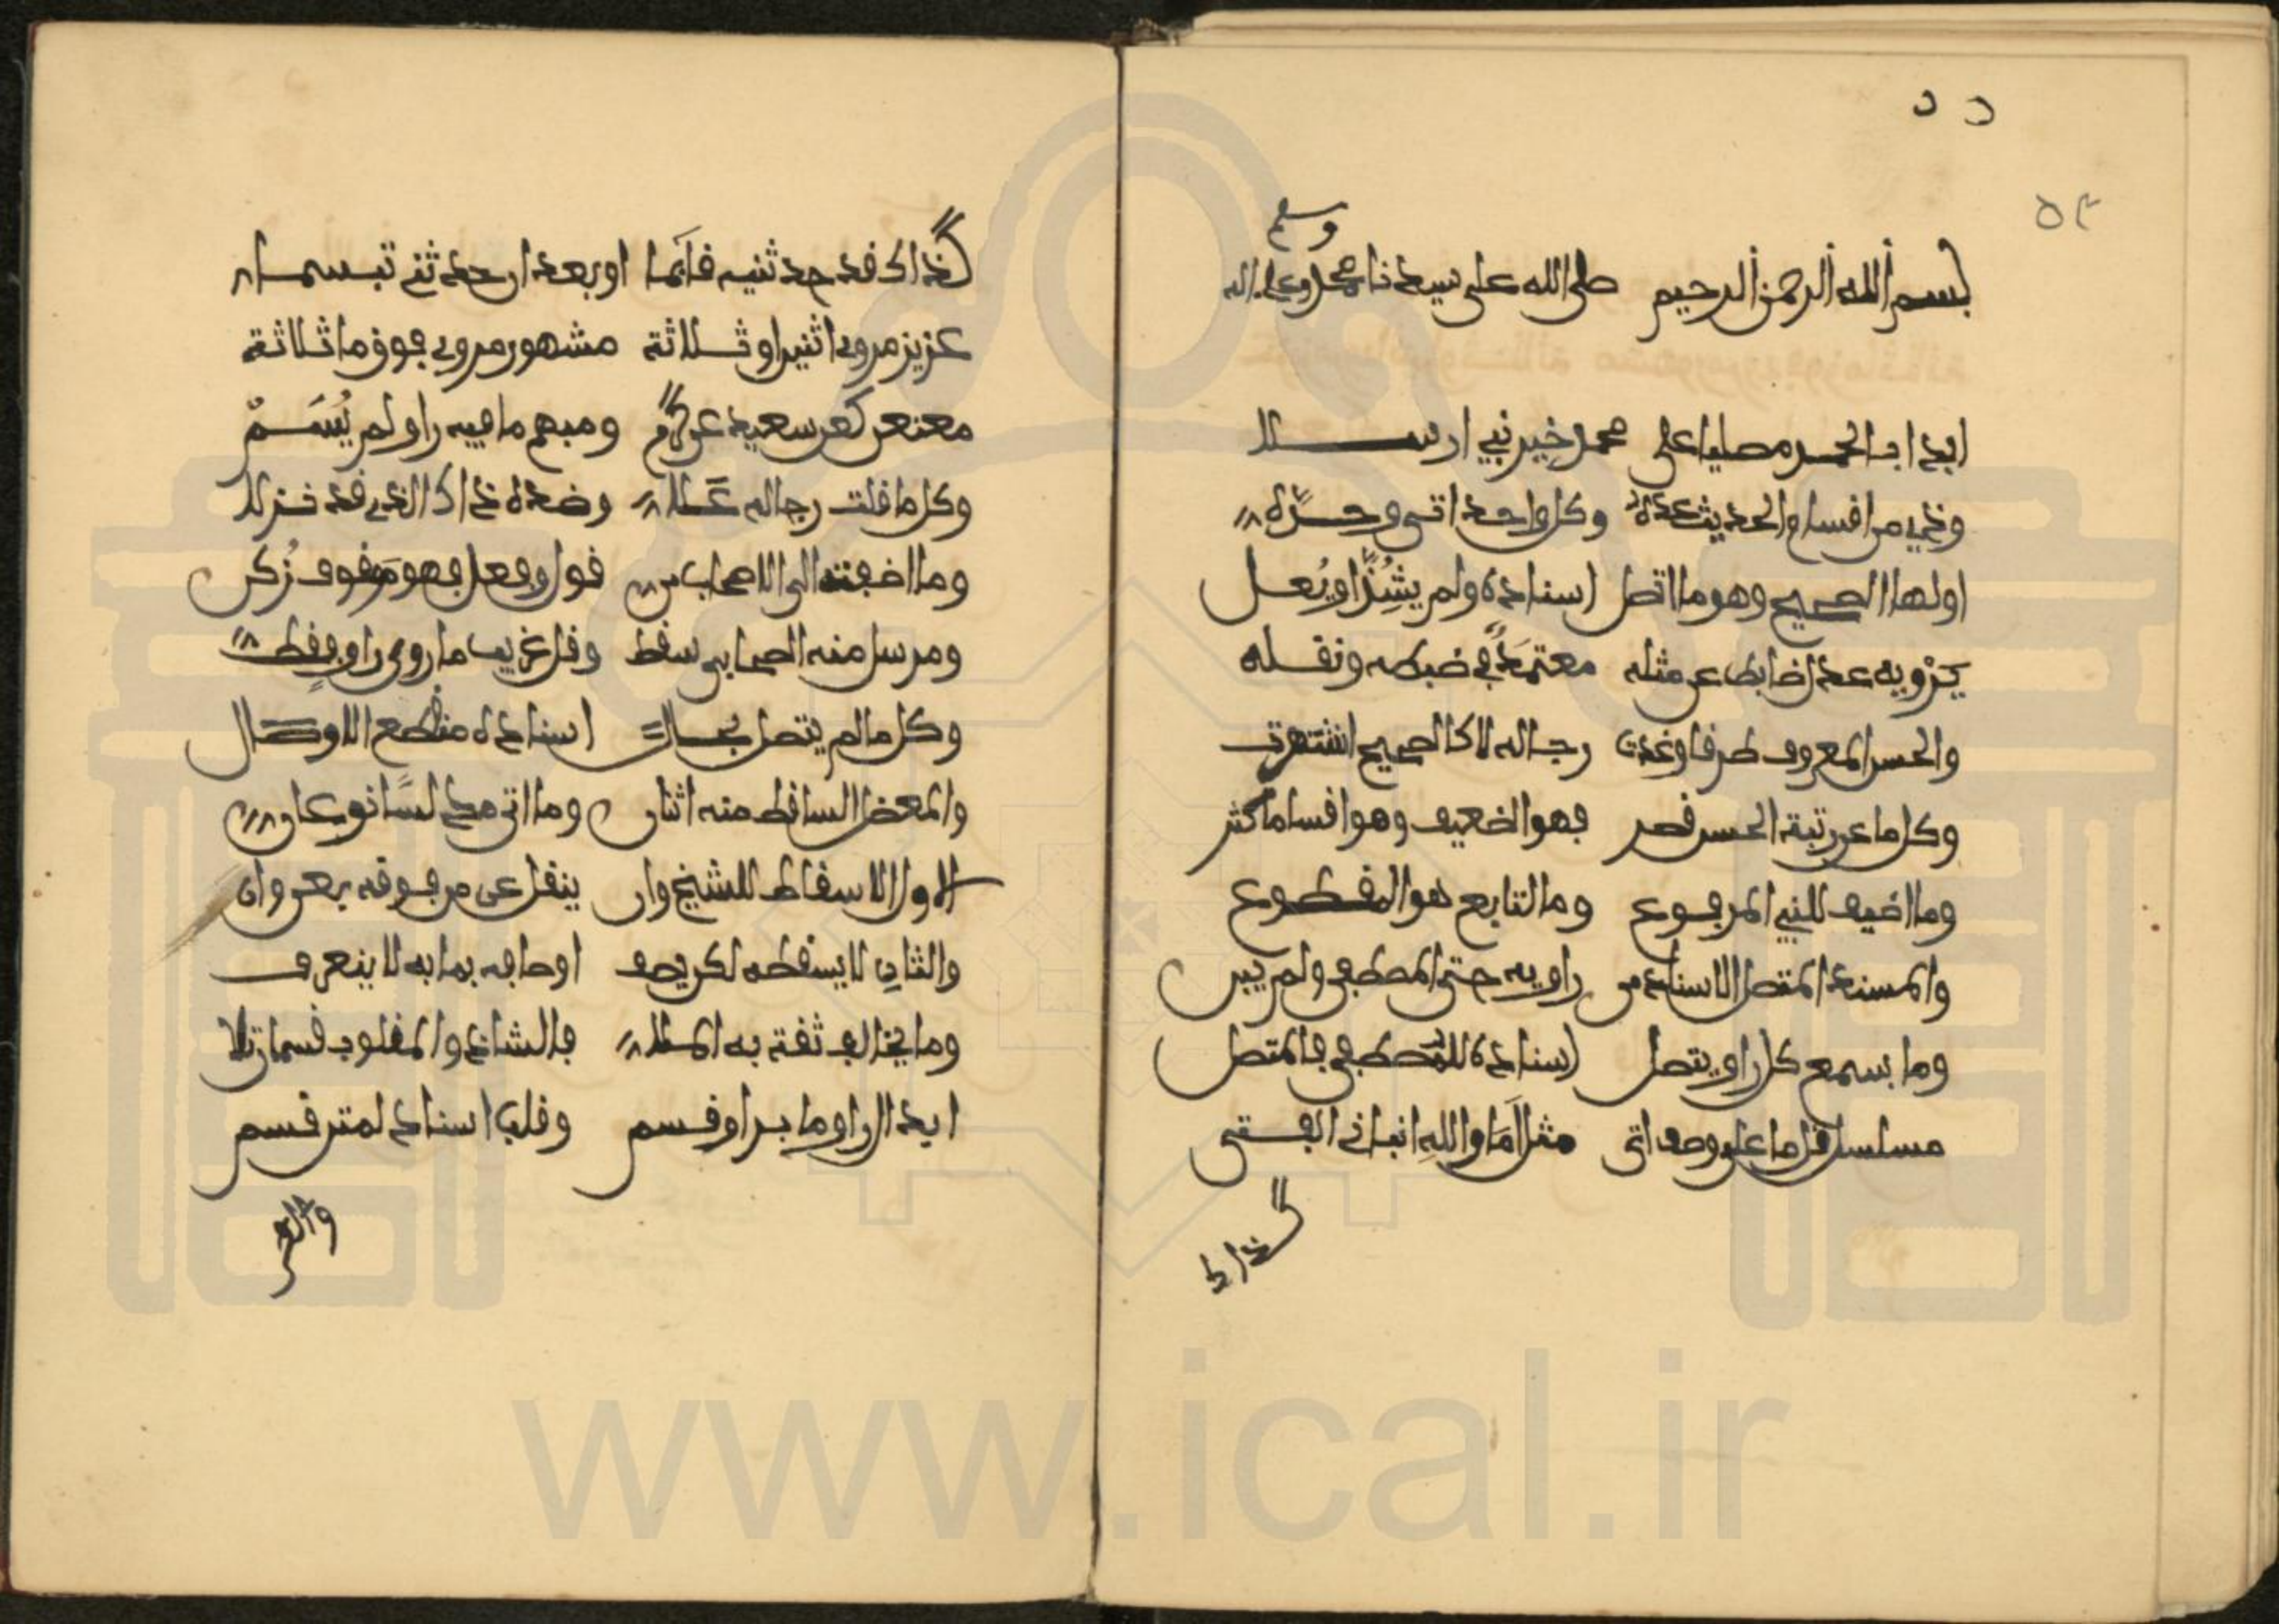 ٥٣
وسلم
بسم الله الرحمن الرحيم صلى الله على سيدنا محمد وعلى اله
ابدا بالحمد مصليا على محمد خير نبي ارسلا
وذي من اقسام الحديث عده وكل واحد اتى وحده
اولها الصحيح وهو ما اتصل اسناده ولم يشذ او يعل
يرويه عدل ضابط عن مثله معتمد في ضبطه ونقله
والحسن المعروف طرقا وغدت رجاله لا كالصحيح اشتهرت
وكل ما عن رتبة الحسن قصر فهو الضعيف وهو اقساما كثر
وما اضيف للنبي المرفوع وما لتابع هو المقطوع
والمسند المتصل الاسناد من راويه حتى المصطفى ولم يبن
وما بسمع كل راو يتصل اسناده للمصطفى فالمتصل
مسلسل قل ما على وصف اتى مثل اما والله انباني الفتى
كذاك
كذاك قد حدثنيه قائما او بعد ان حدثني تبسما
عزيز مروي اثنين او ثلاثة مشهور مروي فوق ما ثلاثة
معنعن كعن سعيد عن كرم ومبهم ما فيه راو لم يسم
وكل ما قلت رجاله علا وضده ذاك الذي قد نزلا
وما اضفته الى الاصحاب من قول وفعل فهو موقوف زكن
ومرسل منه الصحابي سقط وقل غريب ما روى راو فقط
وكل ما لم يتصل بحال اسناده منقطع الاوصال
والمعضل الساقط منه اثنان وما اتى مدلسا نوعان
الاول الاسقاط للشيخ وان ينقل عن من فوقه بعن وان
والثاني لا يسقطه لكن يصف اوصافه بما به لا ينعرف
وما يخالف ثقة به الملا فالشاذ والمقلوب قسمان تلا
ابدال راو ما براو قسم وقلب اسناد لمتن قسم
والفرد
www.ical.ir